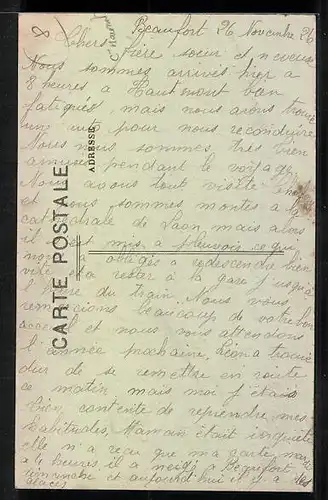 Beaufort 26 Novembre 26
Chers frère soeur et neveux
Nous sommes arrivés hier a
8 heures a Hautmont bien
fatigués, mais nous avons trouvé
une auto pour nous reconduire
Nous nous sommes très bien
amusés pendant le voyage,
Nous avons tout visité
et nous sommes montés a la
cathédrale de Laon mais alors
il s'est mis a pleuvoir ce qui
nous a obligés a redescendre bien
vite et a rester a la gare jusqu'à
l'heure du train. Nous vous
remercions beaucoup de votre bon
accueil et nous vous attendons
l'année prochaine, Léona trouve
dur de se remettre en route
ce matin mais moi j'étais
bien contente de reprendre mes
habitudes, Maman était inquiète
elle n'a reçu que ma carte
a 4 heures, il a neigé a Beaufort
dimanche et aujourd'hui il y a des
glaces
CARTE POSTALE
ADRESSE